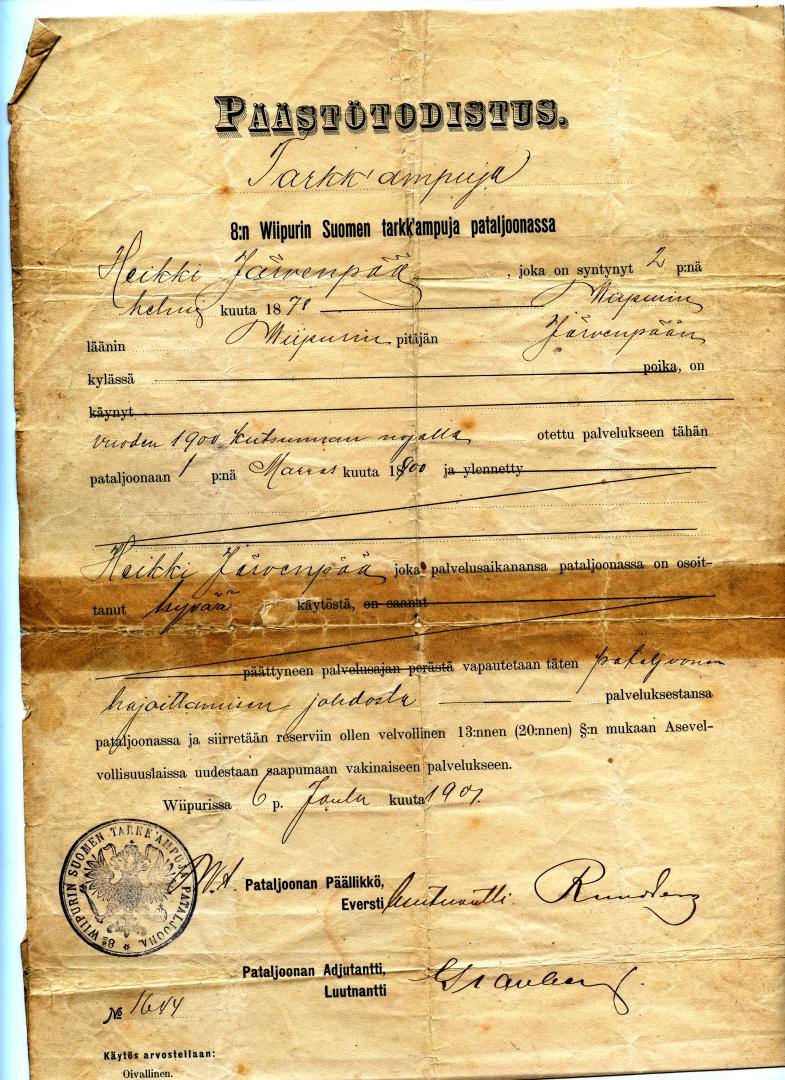 PÄÄSTÖTODISTUS.
Tarkk'ampuja
8:n Wiipurin Suomen tarkk'ampuja pataljoonassa
Heikki Järvenpää, joka on syntynyt 2 p:nä
helmi kuuta 1878 Wiipurin
läänin Wiipurin pitäjän Järvenpään
kylässä poika, on
käynyt
vuoden 1900 kutsunnan nojalla otettu palvelukseen tähän
pataljoonaan 1 p:nä Marras kuuta 1900 ja ylennetty
Heikki Järvenpää joka palvelusaikanansa pataljoonassa on osoit-
tanut hyvää käytöstä, on saanut
päättyneen palvelusajan perästä vapautetaan täten pataljoonan
hajoittamisen johdosta palveluksestansa
pataljoonassa ja siirretään reserviin ollen velvollinen 13:nnen (20:nnen) §:n mukaan Asevel-
vollisuuslaissa uudestaan saapumaan vakinaiseen palvelukseen.
Wiipurissa 6 p. Joulu kuuta 1901.
8S WIIPURIN SUOMEN TARKK'AMPUJA PATALJOONA
Pataljoonan Päällikkö,
Eversti
Pataljoonan Adjutantti,
Luutnantti
№ 1644
Käytös arvostellaan:
Oivallinen.